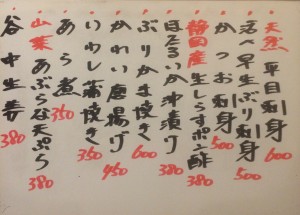 天然 平目刺身 600
活〆早生ぶり刺身 500
かつお刺身 500
静岡産生しらすポン酢 380
ほたるいか沖漬け 380
ぶりかま焼き 600
かれい唐揚げ 450
いわし蒲焼き 350
あら煮 350
山菜 あぶらな天ぷら 380
谷中生姜 380